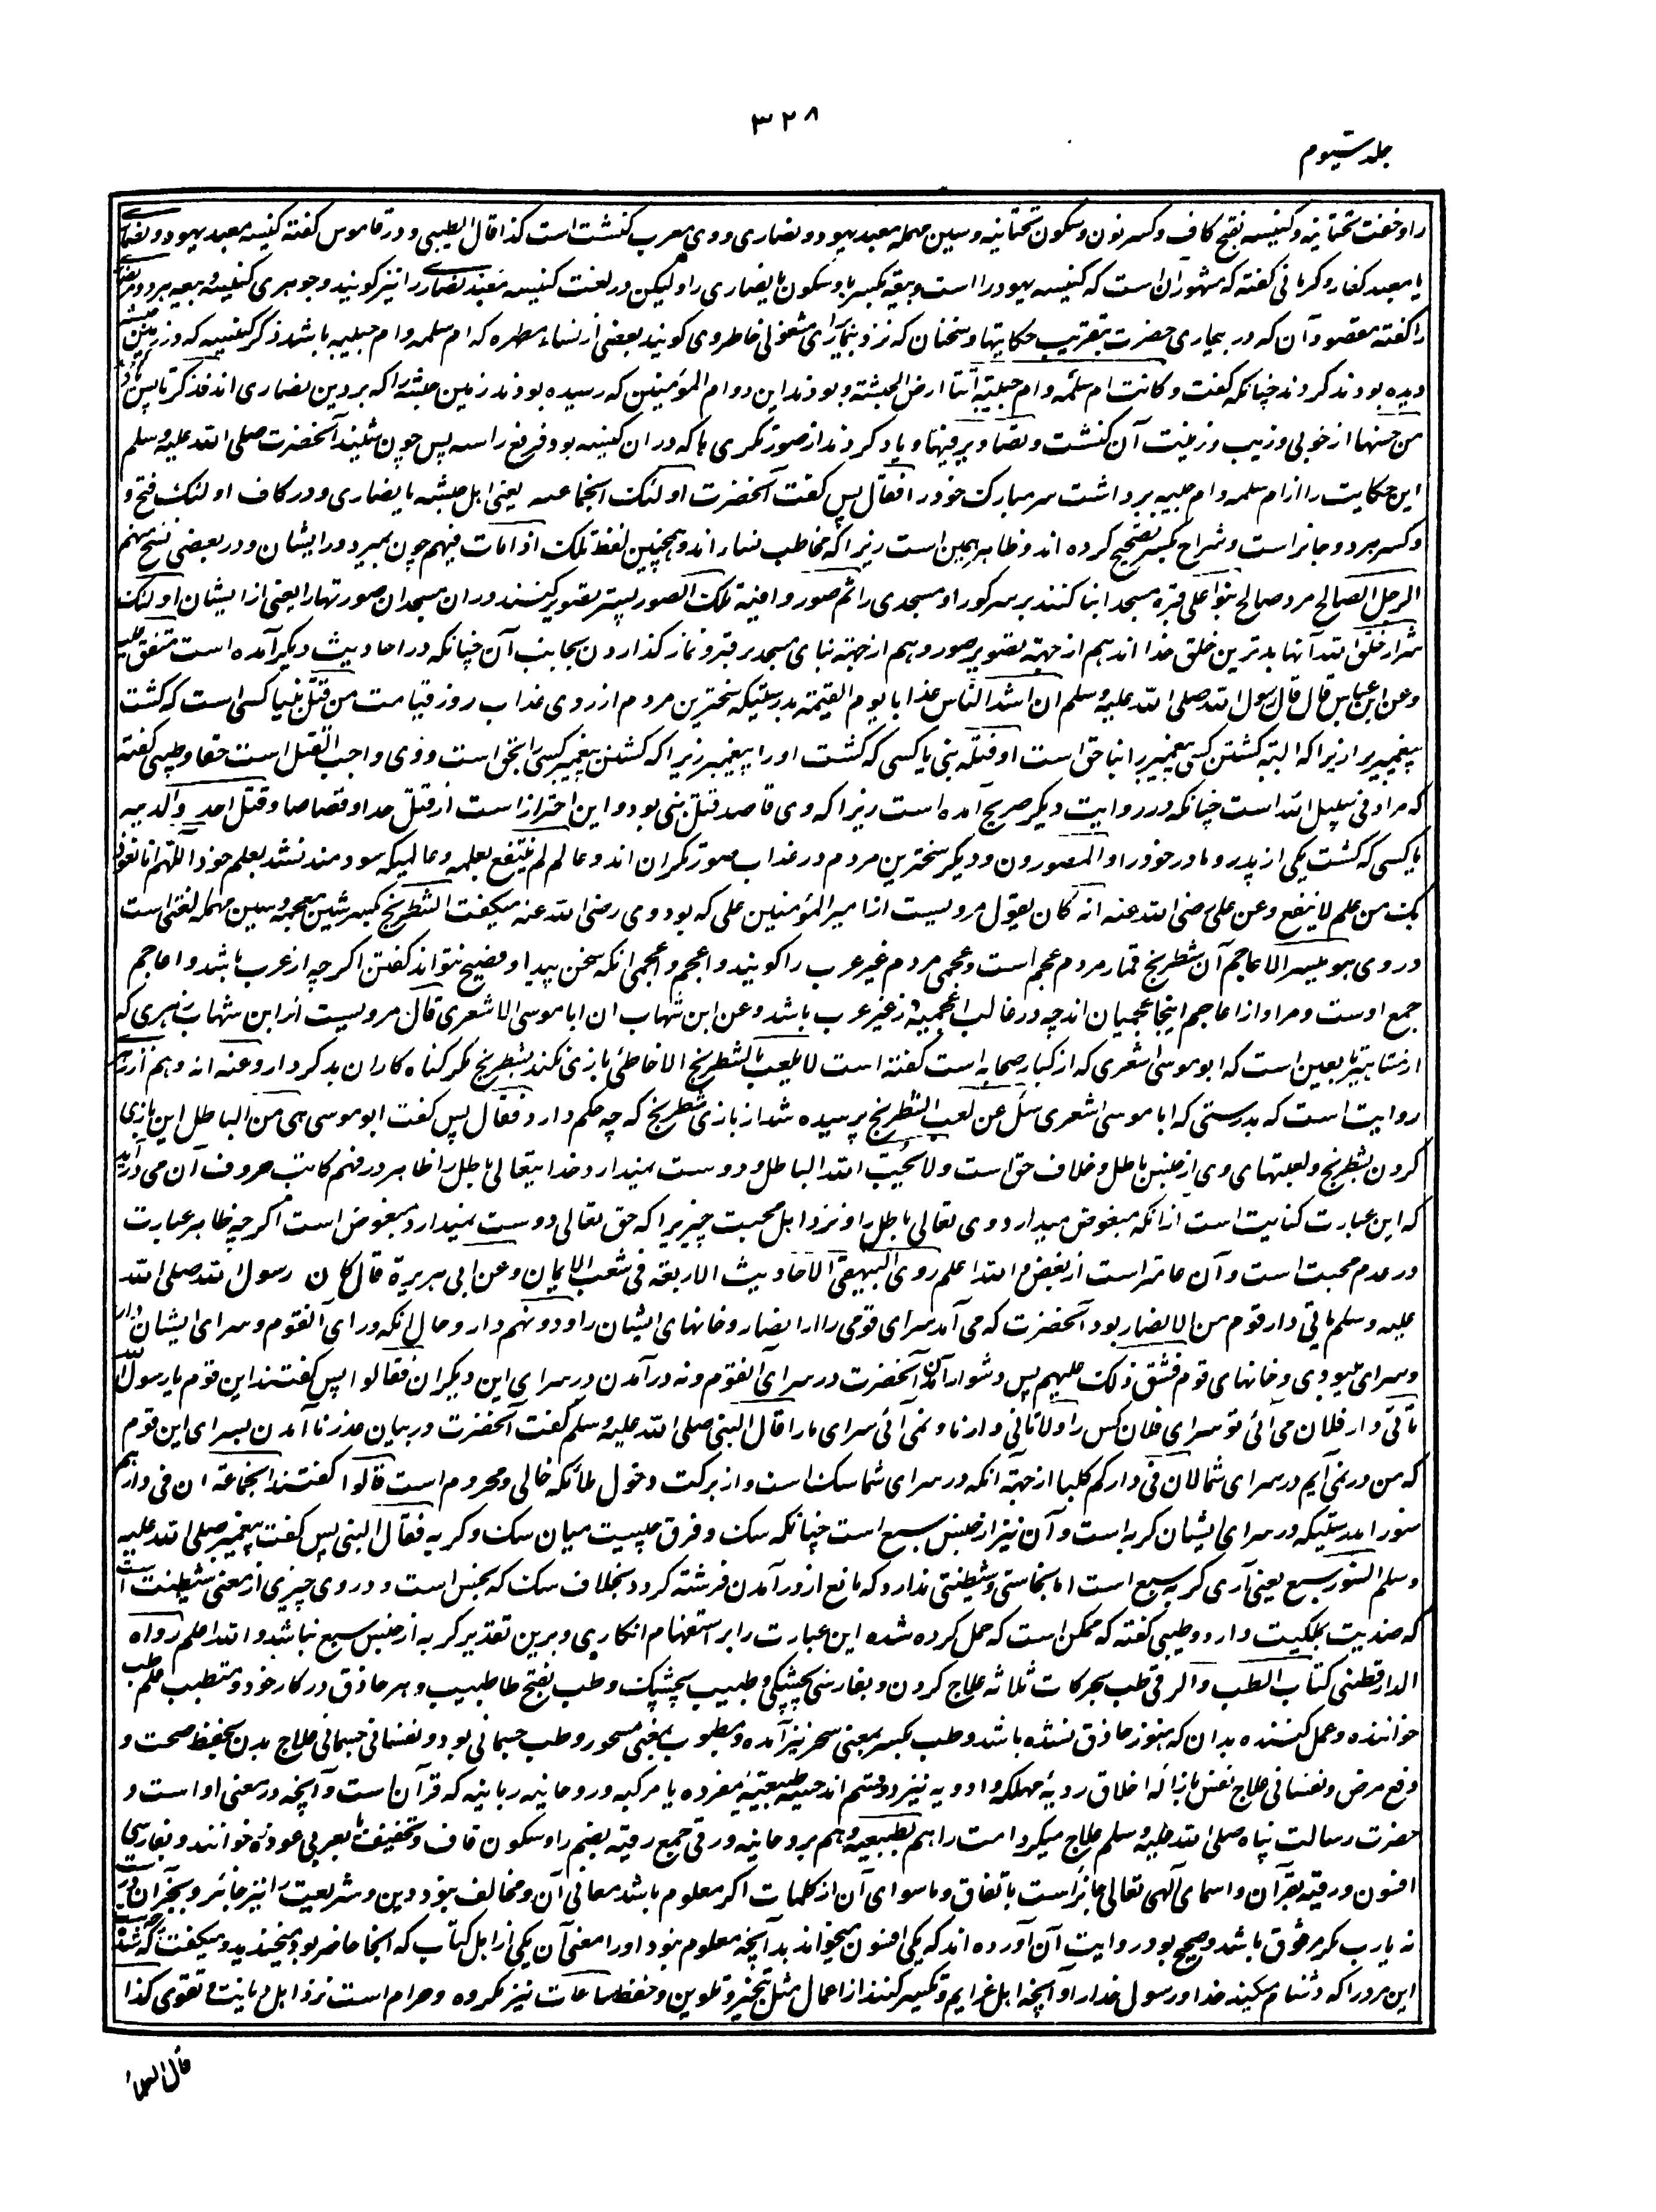 ۳۲۸
جلد سیوم
را و خفت تحتانیه و کنیسه بفتح کاف و کسر نون و سکون تحتانیه و سین مهمله معبد یهود و نصاری و وی معرب کنشت است کذا قال الطیبی و در قاموس گفته کنیسه معبد یهود و نصاری
یا معبد کفار و کرمانی گفته که مشهور آن است که کنیسه یهود را است و بیعة بکسر با و سکون یا نصاری را و لیکن در لغت کنیسه معبد نصاری را نیز گویند و جوهری کنیسه و بیعه هر دو
را گفته مقصود آن که در بیماری حضرت بتقریب حکایتها و سخنان که نزد بیمار برای مشغولی خاطر وی گویند بعضی از نساء مطهره که ام سلمه و ام حبیبه باشد ذکر کنیسه که در زمین
دیده بودند کردند چنانکه گفت و کانت ام سلمة و ام حبیبة اتتا ارض الحبشة و بودند این دو ام المؤمنین که رسیده بودند زمین حبشه را که بر دین نصاری اند فذکرتا پس
من حسنها از خوبی و زیب و زینت آن کنشت و تصاویر فیها و یاد کردند از صورتگری ها که در آن کنیسه بود فرفع راسه پس چون شنید آنحضرت صلی الله علیه و سلم
این حکایت را از ام سلمه و ام حبیبه برداشت سر مبارک خود را فقال پس گفت آنحضرت اولئک آنجماعه یعنی اهل حبشه یا نصاری و در کاف اولئک فتح و
و کسر هر دو جائز است و شراح بکسر تصحیح کرده اند و ظاهر همین است زیرا که مخاطب نساء اند و همچنین لفظ تلک اذا مات فیهم چون بمیرد در ایشان و در بعضی نسخ منهم
الرجل الصالح مرد صالح بنوا علی قبره مسجدا بنا کنند بر سر گور او مسجدی را ثم صوروا فیه تلک الصور پستر تصویر کنند در ان مسجد ان صورتها را یعنی از ایشان اولئک
شرار خلق الله آنها بدترین خلق خدا اند هم از جهة تصویر صور و هم از جهة بنای مسجد بر قبر و نماز گذاردن بجانب آن چنانکه در احادیث دیگر آمده است متفق علیه
و عن ابن عباس قال قال رسول الله صلی الله علیه و سلم ان اشد الناس عذابا یوم القیمة بدرستیکه سخت‌ترین مردم از روی عذاب روز قیامت من قتل نبیا کسی است که کشت
پیغمبر را زیرا که البته کشتن کسی پیغمبر را بناحق است او قتله نبی یا کسی که کشت او را پیغمبر زیرا که کشتن پیغمبر کسی را بحق است و وی واجب القتل است حقا و طیبی گفته
که مراد فی سبیل الله است چنانکه در روایت دیگر صریح آمده است زیرا که وی قاصد قتل نبی بود و این احتراز است از قتل حدا و قصاصا و قتل احد والدیه
یا کسی که کشت یکی از پدر و مادر خود را و المصورون و دیگر سخت‌ترین مردم در عذاب صورتگران اند و عالم لم ینتفع بعلمه و عالمیکه سودمند نشد بعلم خود اللهم انا نعوذ
بک من علم لا ینفع و عن علی رضی الله عنه انه کان یقول مرویست از امیر المؤمنین علی که بود وی رضی الله عنه میگفت الشطرنج بکسر شین معجمه و سین مهمله لغتی است
در وی هو میسر الاعاجم آن شطرنج قمار مردم عجم است و عجمی مردم غیر عرب را گویند و اعجم و اعجمی انکه سخن پیدا و فصیح نتواند گفتن اگرچه از عرب باشد و اعاجم
جمع اوست و مراد از اعاجم اینجا عجمیان اند چه در غالب اعجمیة از غیر عرب باشد و عن ابن شهاب ان ابا موسی الاشعری قال مرویست از ابن شهاب زهری که
از مشاهیر تابعین است که ابو موسی اشعری که از کبار صحابه است گفته است لا یلعب بالشطرنج الا خاطئ بازی نکند بشطرنج مگر گناه کاران بد کردار و عنه انه و هم از
روایت است که بدرستی که ابا موسی اشعری سئل عن لعب الشطرنج پرسیده شد از بازی شطرنج که چه حکم دارد فقال پس گفت ابو موسی هی من الباطل این بازی
کردن بشطرنج و لعبتهای وی از جنس باطل و خلاف حق است و لا یحب الله الباطل و دوست نمیدارد خدایتعالی باطل را ظاهر در فهم کاتب حروف آن می درآید
که این عبارت کنایت است از انکه مبغوض میدارد وی تعالی باطل را و نزد اهل محبت چیزی را که حق تعالی دوست نمیدارد مبغوض است اگرچه ظاهر عبارت
در عدم محبت است و آن عامتر است از بغض و الله اعلم روی البیهقی الاحادیث الاربعة فی شعب الایمان و عن ابی هریرة قال کان رسول الله صلی الله
علیه و سلم یاتی دار قوم من الانصار بود آنحضرت که می آمد سرای قومی را از انصار و خانهای ایشان را و دونهم دار و حال انکه ورای آنقوم و سرای ایشان دار
و سرای میبودی و خانهای قوم فشق ذلک علیهم پس دشوار آمد آن آنحضرت در سرای آنقوم و نه درآمدن در سرای این دیگران فقالوا پس گفتند این قوم یا رسول الله
تاتی دار فلان می آئی تو سرای فلان کس را و لا تاتی دارنا و نمی آئی سرای ما را قال النبی صلی الله علیه و سلم گفت آنحضرت در بیان عذر ناآمدن بسرای این قوم
که من در نمی آیم در سرای شما لان فی دارکم کلبا از جهة انکه در سرای شما سگ است و از برکت دخول ملائکه خالی و محروم است قالوا گفتند آنجماعة ان فی دارهم
سنورا بدرستیکه در سرای ایشان گربه است و آن نیز از جنس سبع است چنانکه سگ و فرق چیست میان سگ و گربه فقال النبی پس گفت پیغمبر صلی الله علیه
و سلم السنور سبع یعنی آری گربه سبع است اما نجاستی و شیطنتی ندارد که مانع از درآمدن فرشته گردد بخلاف سگ که نجس است و در وی چیزی از معنی شیطنت است
که ضدیت بملکیت دارد و طیبی گفته که ممکن است که حمل کرده شده این عبارت را بر استفهام انکاری و برین تقدیر گربه از جنس سبع نباشد و الله اعلم رواه
الدارقطنی کتاب الطب و الرقی طب بحرکات ثلاثه علاج کردن و بفارسی بچشپکی و طبیب بچشپک و طب بفتح طا طبیب و هر حاذق در کار خود و متطبب علم طب
خواننده و عمل کننده بدان که هنوز حاذق نشده باشد و طب بکسر بمعنی سحر نیز آمده و مطبوب بمعنی مسحور و طب جسمانی بود و نفسانی جسمانی علاج بدن بحفظ صحت و
دفع مرض و نفسانی علاج نفس بازاله اخلاق ردیه مهلکه و ادویه نیز دو قسم اند جسمیه طبیعیه مفرده یا مرکبه و روحانیه ربانیه که قرآن است و آنچه در معنی او است و
حضرت رسالت پناه صلی الله علیه و سلم علاج میکرد امت را هم بطبیعیه و هم بروحانیه و رقی جمع رقیه بضم را و سکون قاف و تخفیف یا بعربی عوذه خوانند و بفارسی
افسون و رقیه بقرآن و اسمای آلهی تعالی جائز است باتفاق و ماسوای آن از کلمات اگر معلوم باشد معانی آن و مخالف نبود دین و شریعت را نیز جائز و بجز آن
نه یا رب مگر موثوق باشد و صحیح بود روایت آن آورده اند که یکی افسون میخواند بدآنچه معلوم نبود او را معنی آن یکی از اهل کتاب که آنجا حاضر بود میخندید و میگفت
این مرد را که دشنام میکند خدا و رسول خدا را و آنچه اهل عزایم و تکسیر کنند از اعمال مثل تبخیر و تلوین و حفظ ساعات نیز مکروه و حرام است نزد اهل دیانت و تقوی کذا
قال العلماء